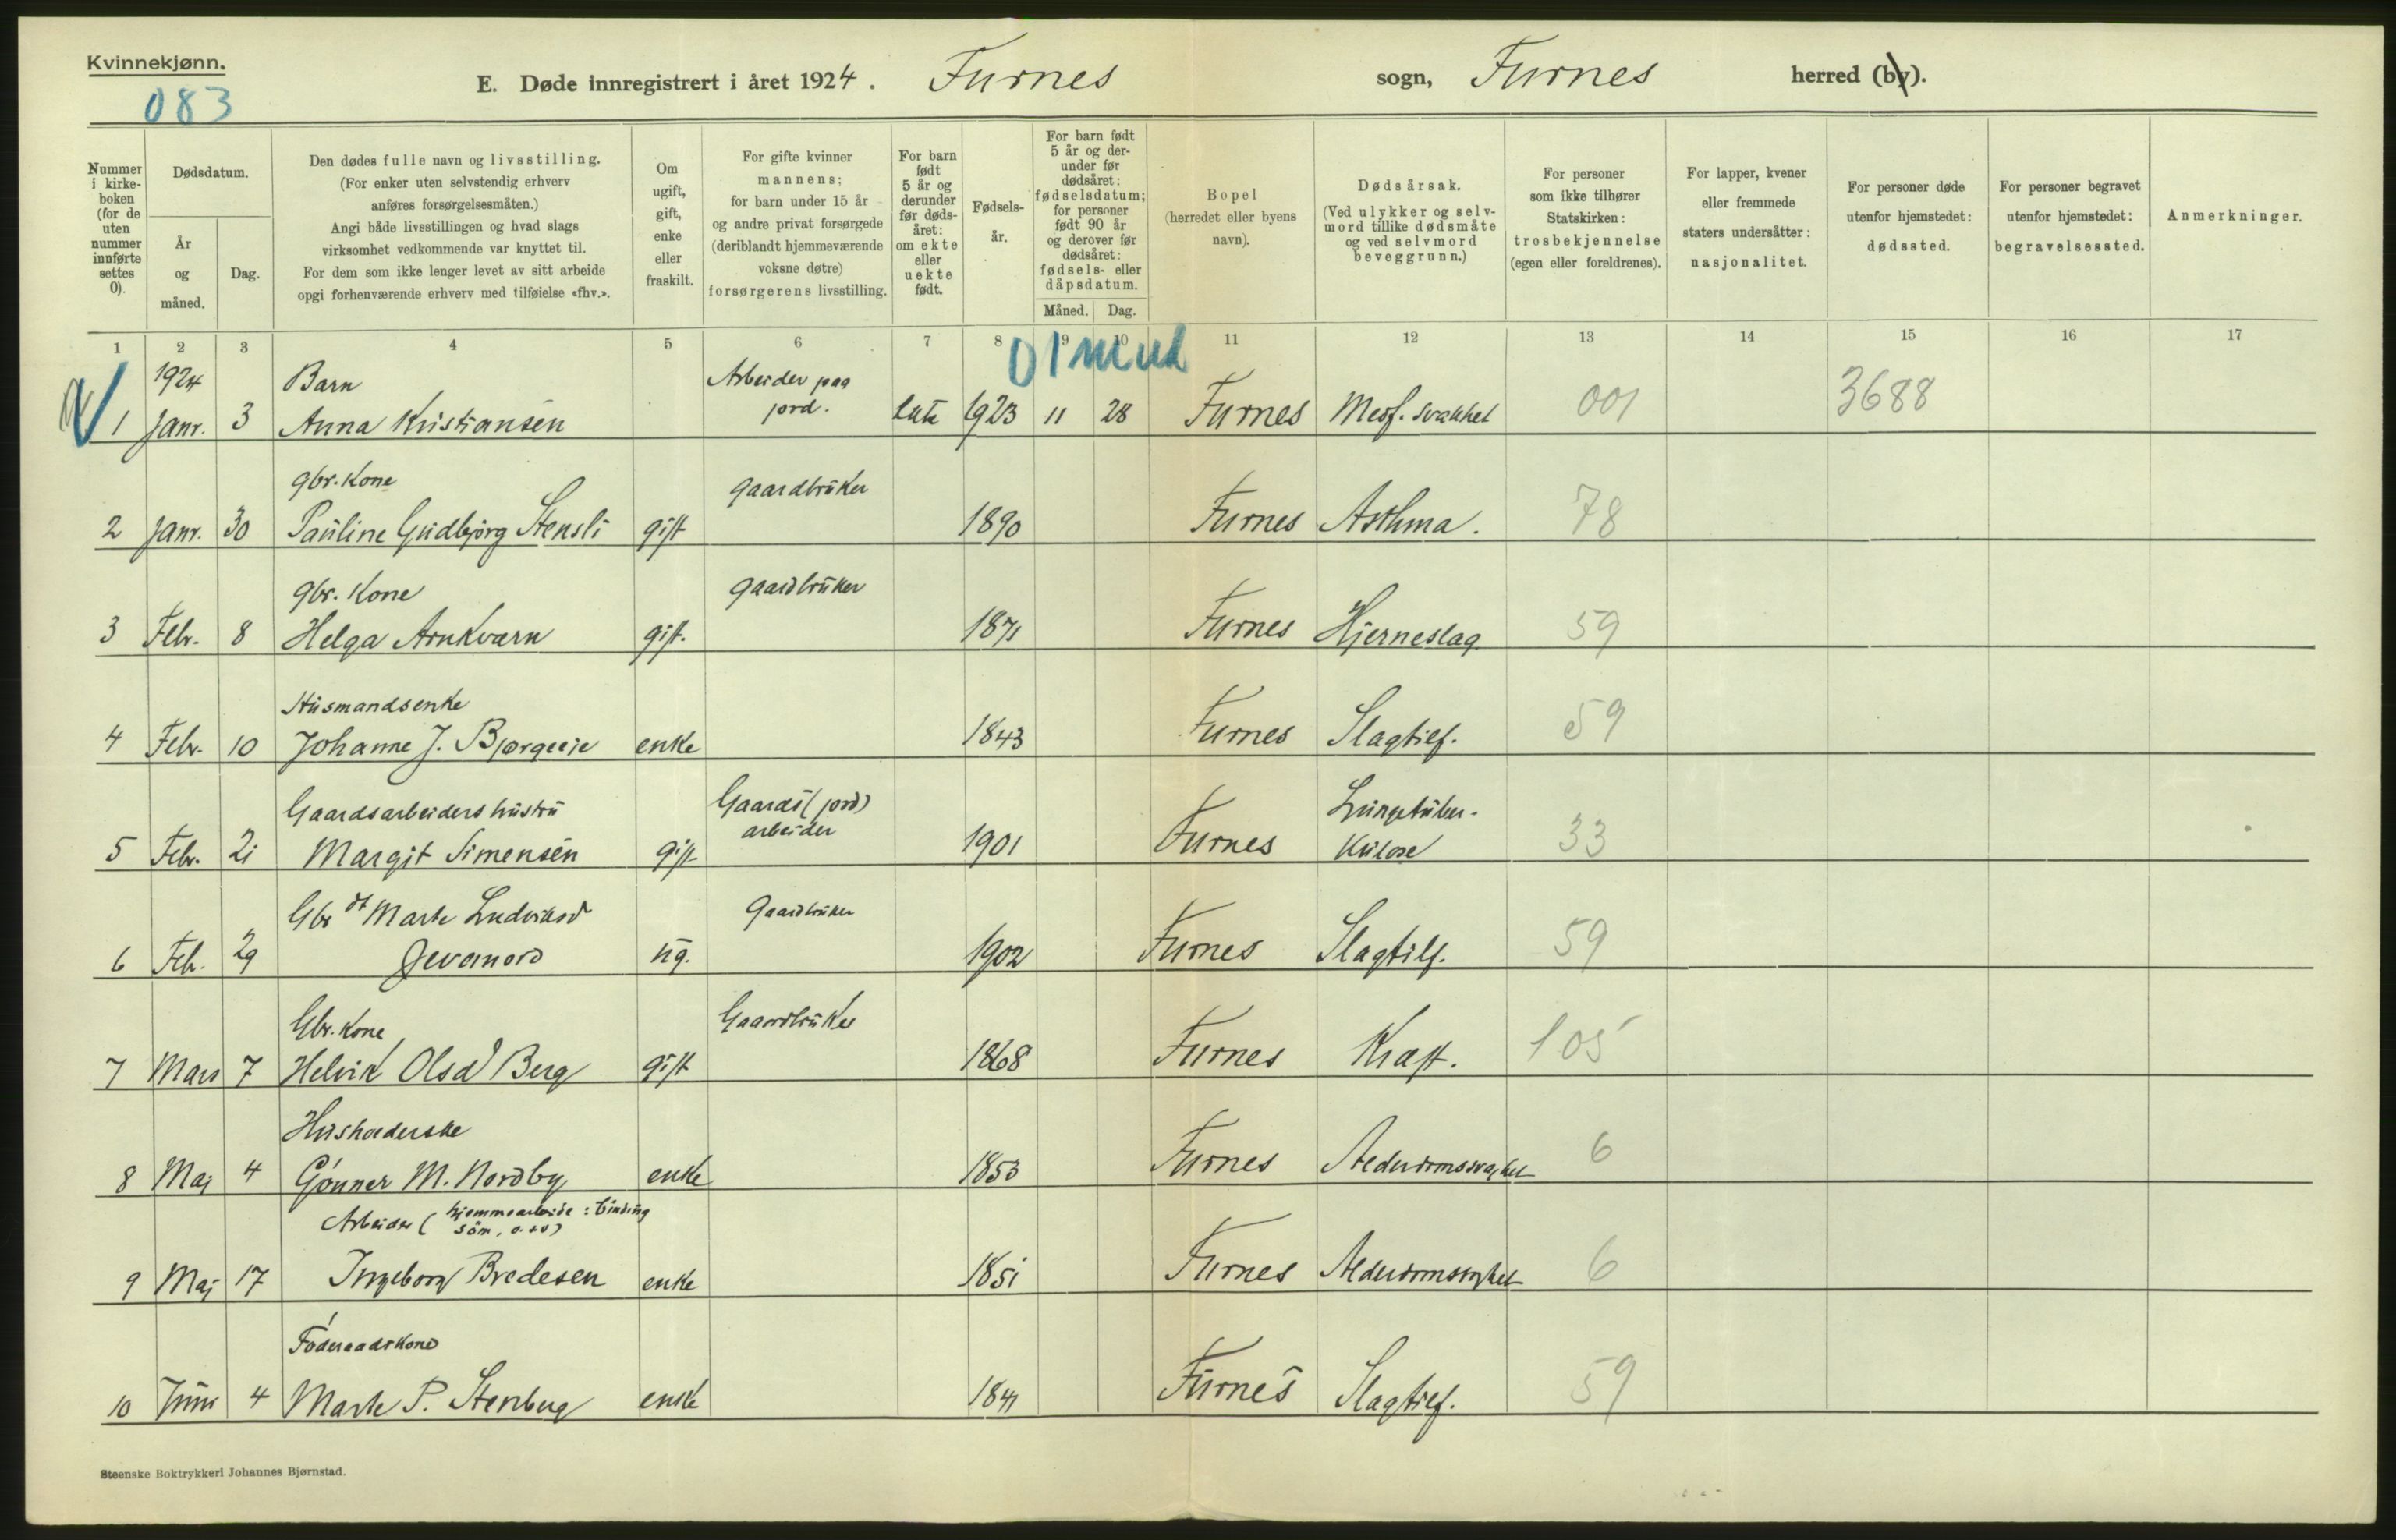 Kvinnekjønn.
083
E. Døde innregistrert i året 1924. Furnes sogn, Furnes herred (by).
Nummer i kirkeboken (for de uten nummer innførte settes 0).
Dødsdatum.
År og måned.
Dag.
Den dødes fulle navn og livsstilling.
(For enker uten selvstendig erhverv
anføres forsørgelsesmåten.)
Angi både livsstillingen og hvad slags
virksomhet vedkommende var knyttet til.
For dem som ikke lenger levet av sitt arbeide
opgi forhenværende erhverv med tilføielse «fhv.».
Om ugift, gift, enke eller fraskilt.
For gifte kvinner
mannens;
for barn under 15 år
og andre privat forsørgede
(deriblandt hjemmeværende
voksne døtre)
forsørgerens livsstilling.
For barn født 5 år og derunder før dødsåret: om ekte eller uekte født.
Fødselsår.
For barn født 5 år og derunder før dødsåret: fødselsdatum; for personer født 90 år og derover før dødsåret: fødsels- eller dåpsdatum.
Måned. Dag.
Bopel
(herredet eller byens
navn).
Dødsårsak.
(Ved ulykker og selvmord tillike dødsmåte
og ved selvmord
beveggrunn.)
For personer
som ikke tilhører
Statskirken:
trosbekjennelse
(egen eller foreldrenes).
For lapper, kvener
eller fremmede
staters undersåtter:
nasjonalitet.
For personer døde
utenfor hjemstedet:
dødssted.
For personer begravet
utenfor hjemstedet:
begravelsessted.
Anmerkninger.
1 2 3 4 5 6 7 8 9 10 11 12 13 14 15 16 17
1924 Barn Arbeider paa
1 Janr. 3 Anna Kristiansen jord. 1923 11 28 Furnes Medf. svakhet 001 3688
gbr. Kone gaardbruker
2 Janr. 30 Pauline Gudbjørg Stensli gift 1890 Furnes Asthma. 78
gbr. Kone gaardbruker
3 Febr. 8 Helga Arnkværn gift. 1871 Furnes Hjerneslag 59
Husmandsenke
4 Febr. 10 Johanne J. enke 1843 Furnes Slagtilf. 59
Gaardsarbeiders hustru Gaards (jord) Lungetuber-
arbeider
5 Febr. 21 Margit Simensen gift 1901 Furnes kulose 33
Gbr dt Marte Ludviksd Gaardbruker
6 Feb. 29 ug. 1902 Furnes Slagtilf. 59
Gbr. Kone Gaardbruker
7 Mars 7 Helvik Olsd Berg gift 1868 Furnes Kræft. 105
Husholderske
8 Mai 4 Gønner M. Nordby enke 1853 Furnes Alderdomssvakhet 6
Arbeider (hjemmearbeide: binding
søm, o.s.v)
9 Mai 17 Ingeborg Bredesen enke 1851 Furnes 6
Føderaadskone
10 Juni 4 Marte P. Stenberg enke 1841 Furnes Slagtilf. 59
Steenske Boktrykkeri Johannes Bjørnstad.